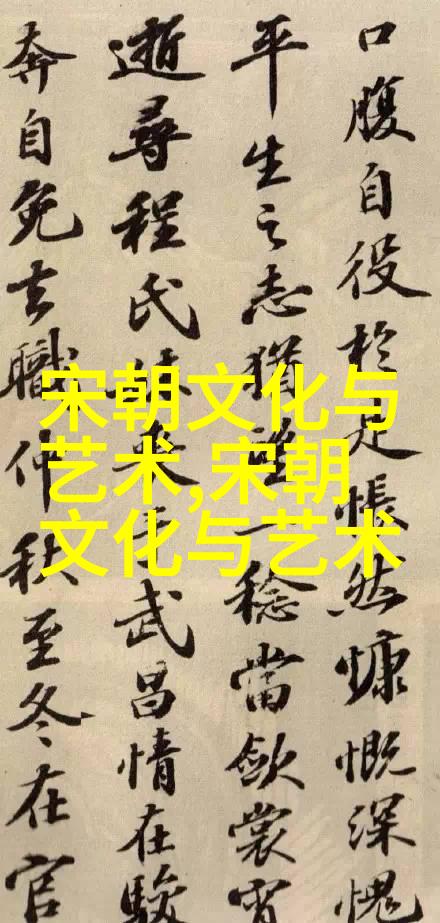 口腹自役於是悵然慷慨深愧
平生之志猶望一稔當斂裳宵
逝尋程氏妹喪于武昌情在駿
奔自免去職仲秋至冬在官
宋朝文化与
艺术,宋朝
文化与艺术